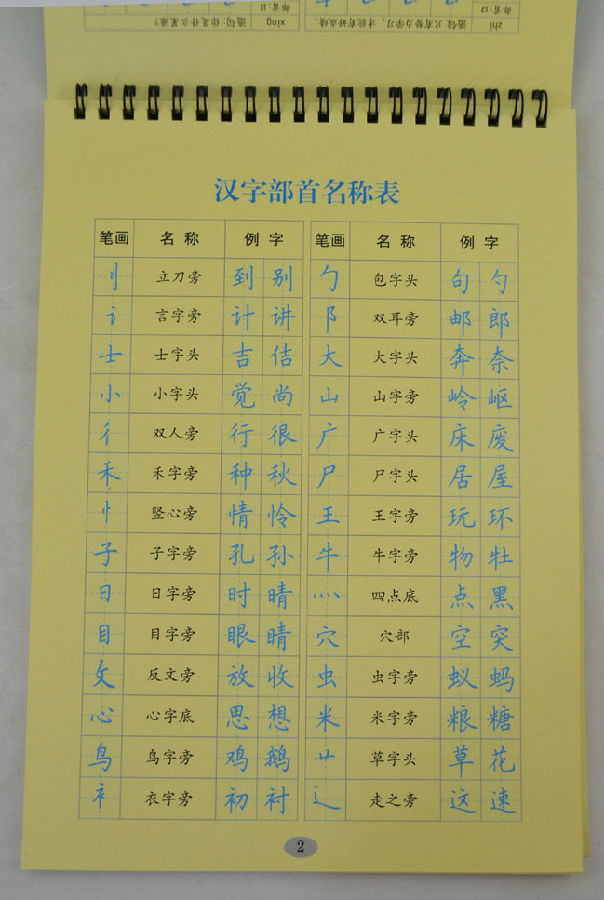 部首:口
部首:日
zhi 造句:只有努力学习，才能有好成绩。
xing 造句:你是什么星座?
汉字部首名称表
笔画 名称 例字 笔画 名称 例字
刂 立刀旁 到 别 勹 包字头 句 勺
讠 言字旁 计 讲 阝 双耳旁 邮 郎
士 士字头 吉 佶 大 大字头 奔 奈
小 小字头 觉 尚 山 山字旁 岭 岖
彳 双人旁 行 很 广 广字头 床 废
禾 禾字旁 种 秋 尸 尸字头 居 屋
忄 竖心旁 情 怜 王 王字旁 玩 环
子 子字旁 孔 孙 牛 牛字旁 物 牡
日 日字旁 时 晴 灬 四点底 点 黑
目 目字旁 眼 睛 穴 穴部 空 突
攵 反文旁 放 收 虫 虫字旁 蚁 蚂
心 心字底 思 想 米 米字旁 粮 糖
鸟 鸟字旁 鸡 鹅 艹 草字头 草 花
衤 衣字旁 初 衬 辶 走之旁 这 速
2